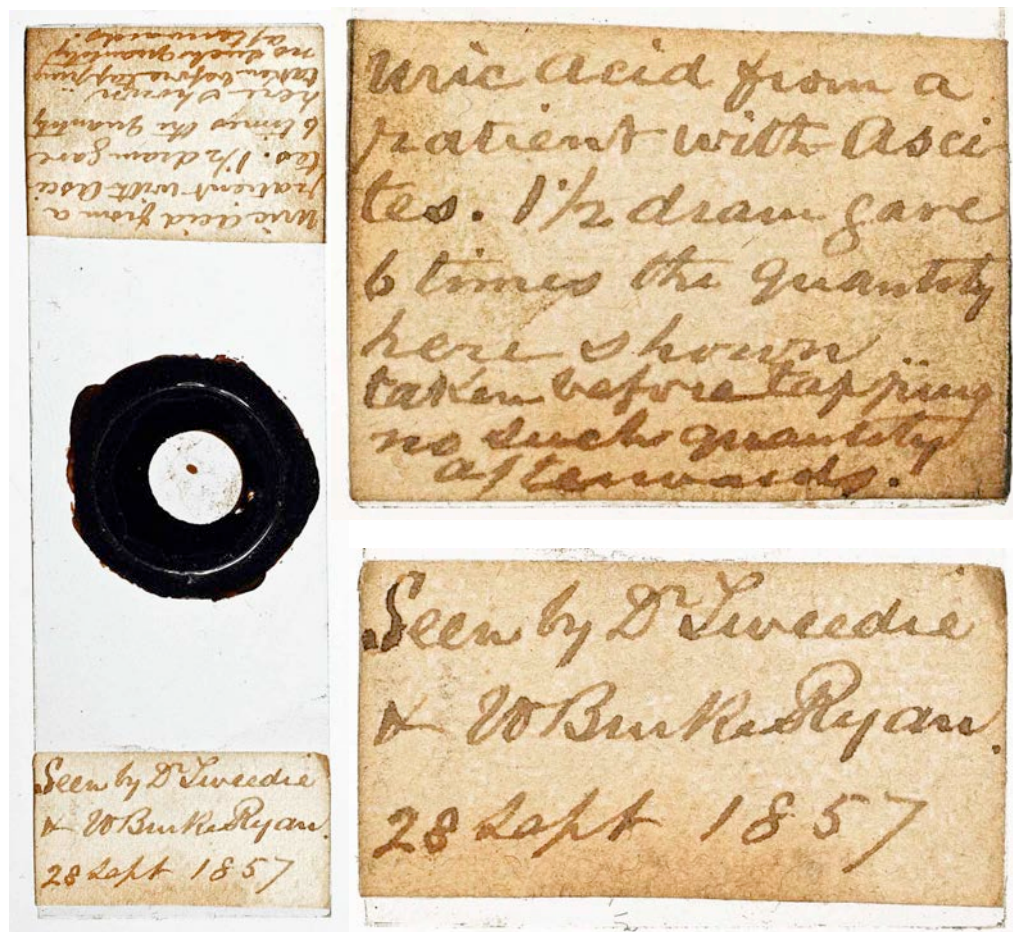 Uric acid from a
patient with Asci
tes. 1 1/2 dram gave
6 times the quantity
here shown
taken before tapping
no such quantity
afterwards.
Seen by Dr Tweedie
& W Burke Ryan.
28 Sept 1857
Uric acid from a
patient with Asci
tes. 1 1/2 dram gave
6 times the quantity
here shown
taken before tapping
no such quantity
afterwards.
Seen by Dr Tweedie
& W Burke Ryan.
28 Sept 1857